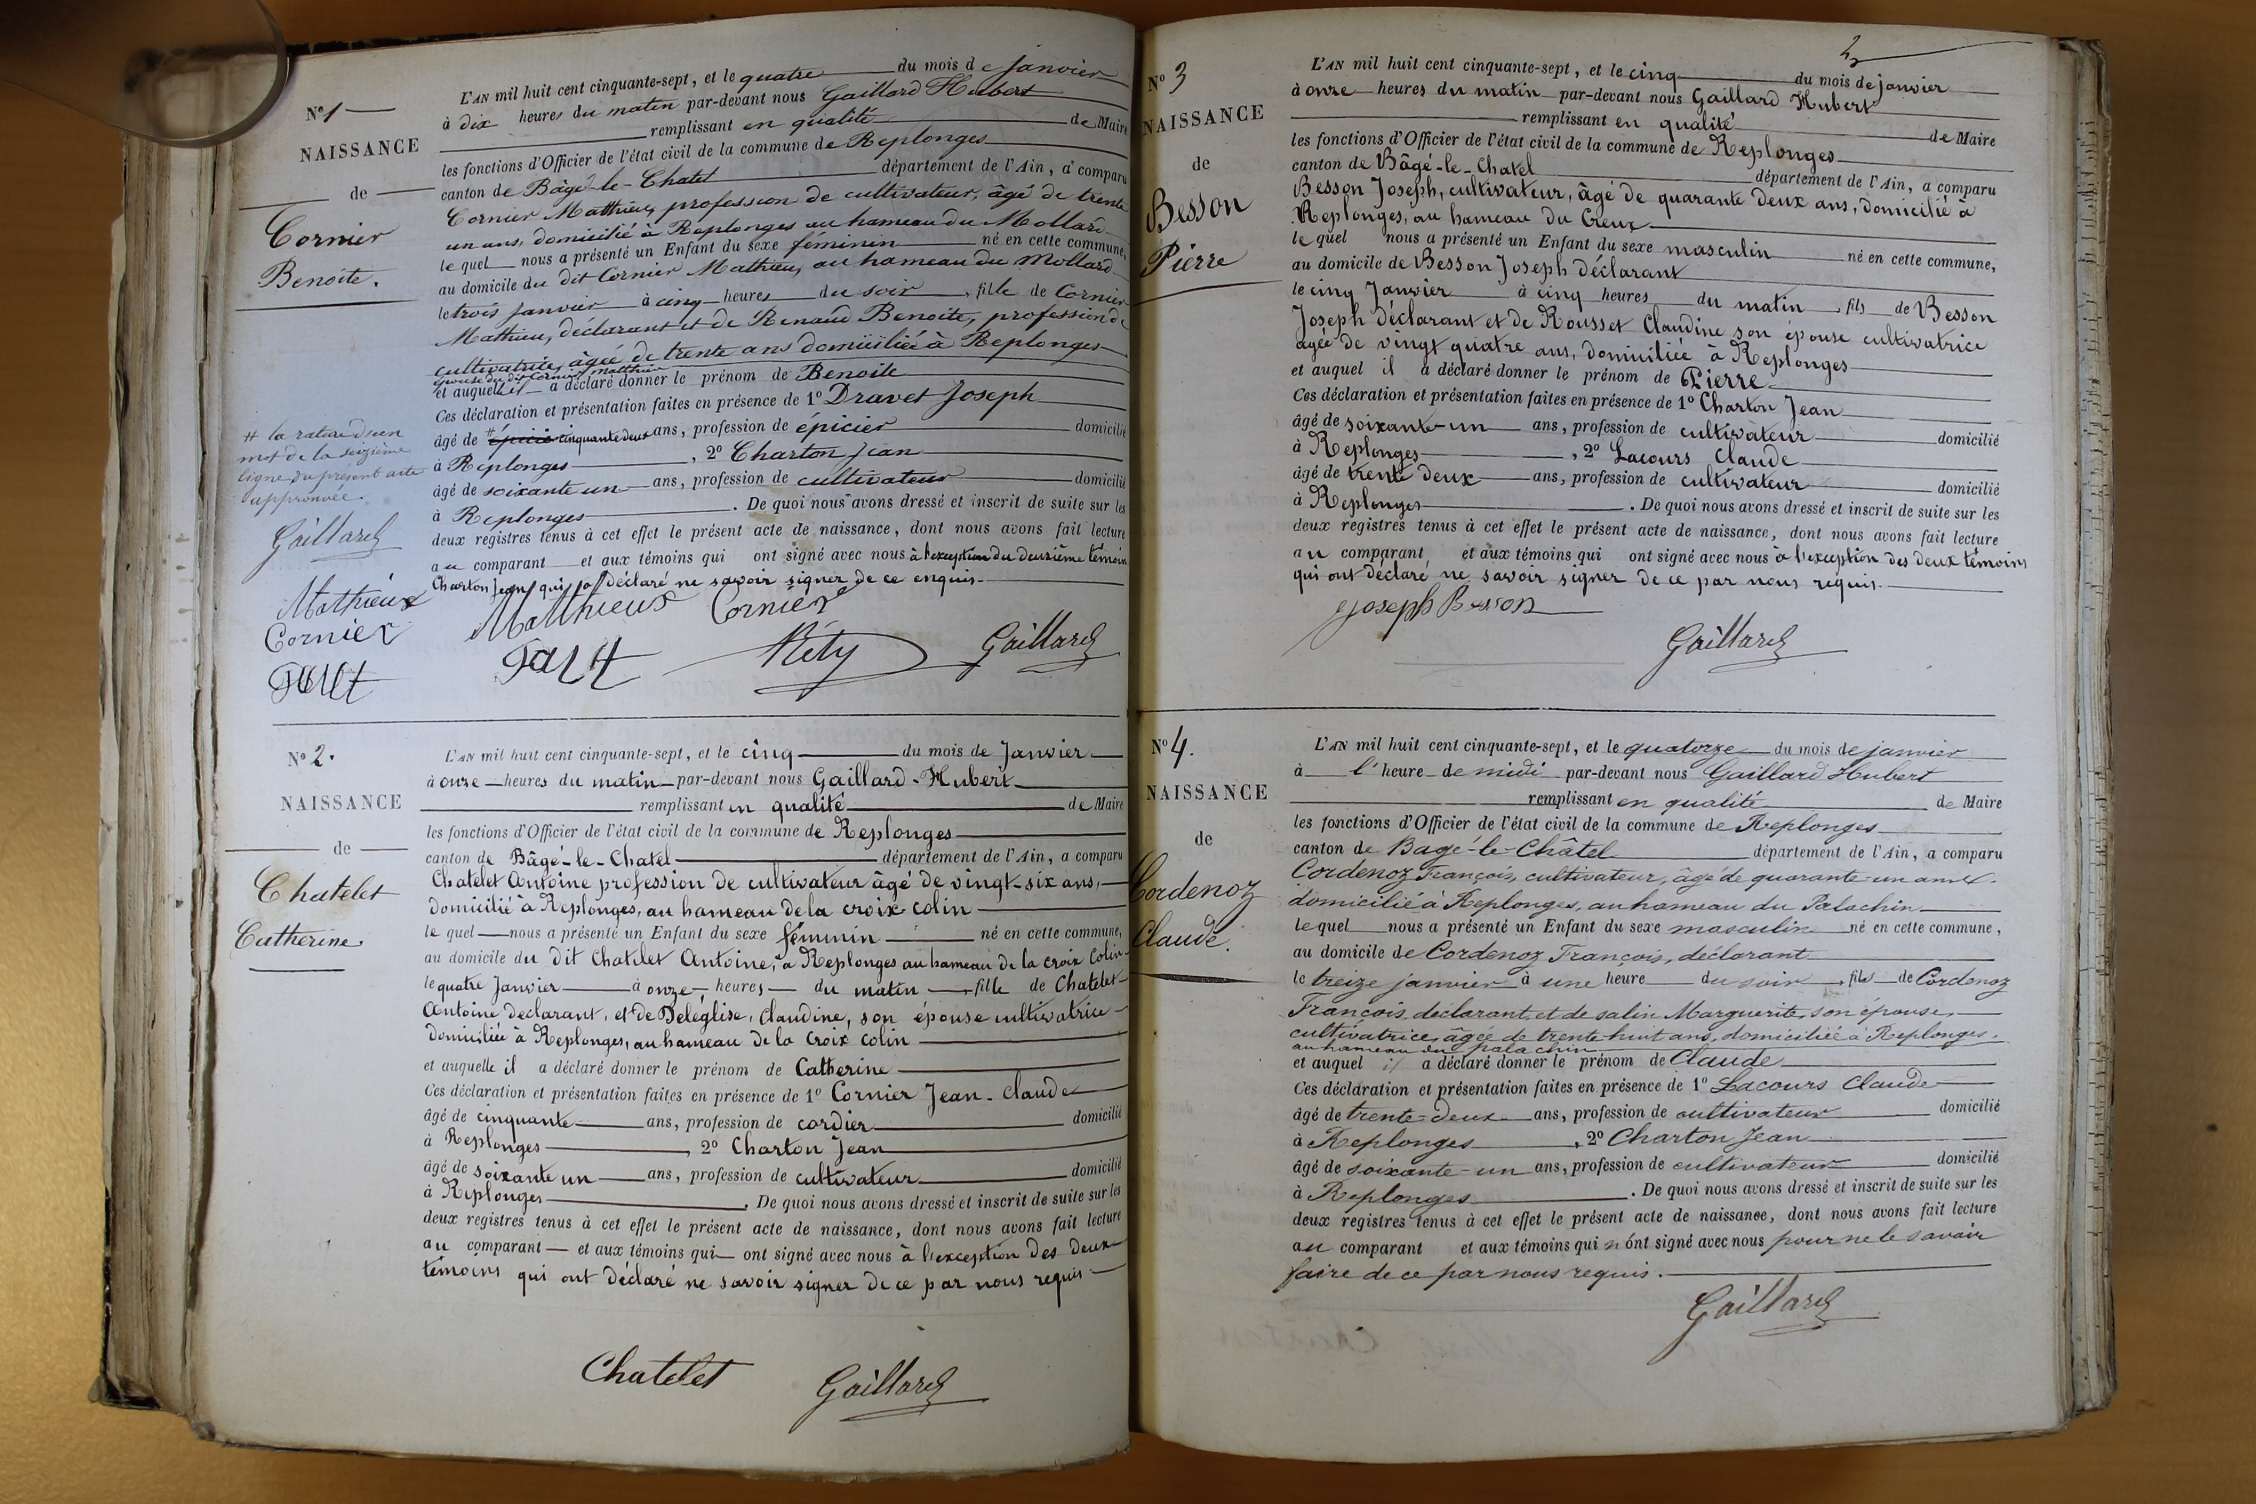 N° 1
NAISSANCE
de
Cornier
Benoite.
L'AN mil huit cent cinquante-sept, et le quatre du mois de janvier
à dix heures du matin par-devant nous Gaillard Hubert
remplissant en qualité de Maire
les fonctions d'Officier de l'état civil de la commune de Replonges
canton de Bâgé-le-Chatel département de l'Ain, a comparu
Cornier Mathieu, profession de cultivateur, âgé de trente
un ans, domicilié à Replonges au hameau du Mollard
lequel nous a présenté un Enfant du sexe féminin né en cette commune,
au domicile du dit Cornier Mathieu, au hameau du Mollard
le trois janvier à cinq heures du soir, fille de Cornier
Mathieu, déclarant et de Renaud Benoite, profession de
cultivatrice, âgée de trente ans domiciliée à Replonges
épouse du dit Cornier Matthieu
et auquel il a déclaré donner le prénom de Benoite
Ces déclaration et présentation faites en présence de 1° Dravet Joseph
âgé de # épicié cinquante deux ans, profession de épicier domicilié
à Replonges, 2° Charton Jean
âgé de soixante un ans, profession de cultivateur domicilié
à Replonges. De quoi nous avons dressé et inscrit de suite sur les
deux registres tenus à cet effet le présent acte de naissance, dont nous avons fait lecture
au comparant et aux témoins qui ont signé avec nous à l'exception du deuxième témoin
Charton Jean qui a déclaré ne savoir signer de ce enquis
# la rature d'un
mot de la seizième
ligne du présent acte
approuvée.
Gaillard
Mathieux
Cornier
Mathieux Cornier
Réty
Gaillard
N° 2.
NAISSANCE
de
Chatelet
Catherine.
L'AN mil huit cent cinquante-sept, et le cinq du mois de Janvier
à onze heures du matin par-devant nous Gaillard-Hubert
remplissant en qualité de Maire
les fonctions d'Officier de l'état civil de la commune de Replonges
canton de Bâgé-le-Chatel département de l'Ain, a comparu
Chatelet Antoine profession de cultivateur âgé de vingt-six ans,
domicilié à Replonges, au hameau de la croix colin
lequel nous a présenté un Enfant du sexe féminin né en cette commune,
au domicile du dit Chatelet Antoine, à Replonges au hameau de la croix colin
le quatre Janvier à onze heures du matin, fille de Chatelet
Antoine declarant, et de Deléglise, Claudine, son épouse cultivatrice
domiciliée à Replonges, au hameau de la Croix colin
et auquelle il a déclaré donner le prénom de Catherine
Ces déclaration et présentation faites en présence de 1° Cornier Jean-Claude
âgé de cinquante ans, profession de cordier domicilié
à Replonges, 2° Charton Jean
âgé de soixante un ans, profession de cultivateur domicilié
à Replonges. De quoi nous avons dressé et inscrit de suite sur les
deux registres tenus à cet effet le présent acte de naissance, dont nous avons fait lecture
au comparant et aux témoins qui ont signé avec nous à l'exception des deux
témoins qui ont déclaré ne savoir signer de ce par nous requis
Chatelet
Gaillard
2
N° 3
NAISSANCE
de
Besson
Pierre
L'AN mil huit cent cinquante-sept, et le cinq du mois de janvier
à onze heures du matin par-devant nous Gaillard Hubert
remplissant en qualité de Maire
les fonctions d'Officier de l'état civil de la commune de Replonges
canton de Bâgé-le-Chatel département de l'Ain, a comparu
Besson Joseph, cultivateur, âgé de quarante deux ans, domicilié à
Replonges, au hameau du Creux
lequel nous a présenté un Enfant du sexe masculin né en cette commune,
au domicile de Besson Joseph déclarant
le cinq Janvier à cinq heures du matin, fils de Besson
Joseph déclarant et de Rousset Claudine son épouse cultivatrice
agée de vingt quatre ans, domiciliée à Replonges
et auquel il a déclaré donner le prénom de Pierre
Ces déclaration et présentation faites en présence de 1° Charton Jean
âgé de soixante-un ans, profession de cultivateur domicilié
à Replonges, 2° Lacours Claude
âgé de trente deux ans, profession de cultivateur domicilié
à Replonges. De quoi nous avons dressé et inscrit de suite sur les
deux registres tenus à cet effet le présent acte de naissance, dont nous avons fait lecture
au comparant et aux témoins qui ont signé avec nous à l'exception des deux témoins
qui ont déclaré ne savoir signer de ce par nous requis.
Joseph Besson
Gaillard
N° 4.
NAISSANCE
de
Cordenoz
Claude.
L'AN mil huit cent cinquante-sept, et le quatorze du mois de janvier
à l'heure de midi par-devant nous Gaillard Hubert
remplissant en qualité de Maire
les fonctions d'Officier de l'état civil de la commune de Replonges
canton de Bagé-le-Châtel département de l'Ain, a comparu
Cordenoz François, cultivateur, âgé de quarante-un ans
domicilié à Replonges, au hameau du Palachin
lequel nous a présenté un Enfant du sexe masculin né en cette commune,
au domicile de Cordenoz François, déclarant
le treize janvier à une heure du soir, fils de Cordenoz
François, déclarant, et de salin Marguerite, son épouse,
cultivatrice, âgée de trente-huit ans, domiciliée à Replonges,
au hameau du palachin
et auquel il a déclaré donner le prénom de Claude
Ces déclaration et présentation faites en présence de 1° Lacours Claude
âgé de trente-deux ans, profession de cultivateur domicilié
à Replonges, 2° Charton Jean
âgé de soixante-un ans, profession de cultivateur domicilié
à Replonges. De quoi nous avons dressé et inscrit de suite sur les
deux registres tenus à cet effet le présent acte de naissance, dont nous avons fait lecture
au comparant et aux témoins qui n'ont signé avec nous pour ne le savoir
faire de ce par nous requis.
Gaillard